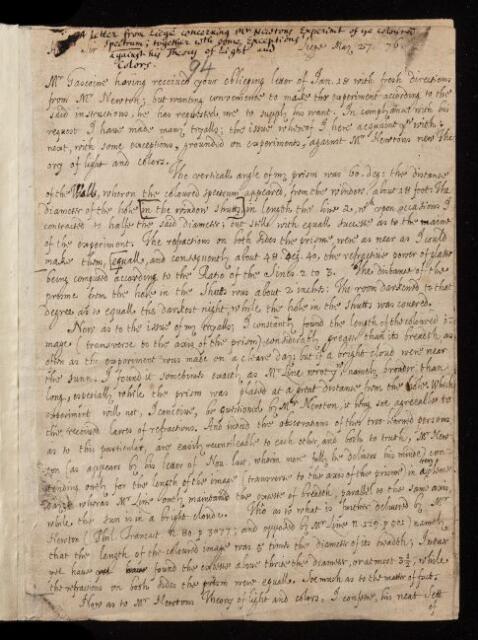 A letter from Liege concerning Mr Newtons Experiment of ye coloured
Spectrum; together with some Exceptions
Sir Liege May 27. 76.
against his Theory of Light and
Colors.
94
Mr Gascoine having received your obleeging leter of Jan. 18 with fresh directions
from Mr Newton; but wanting convenience to make the experiment according to the
said instructions, he has requested me to supply his want. In complyance with his
request I have made many tryalls; the issue whereof I here acquaint you with;
next, with some exceptions, grounded on experiments, against Mr Newtons new The-
ory of light and colors.
The verticall angle of my prism was 60 deg: the distance
of the Wall, whereon the coloured spectrum appeared, from the window, about 18 foot: The
diameter of the hole in the window shutts in length the line 2, wch upon occasions I
contracted to halfe the said diameter; but still with equall successe as to the maine
of the experiment. The refractions on both sides the prisme were as near as I could
make them, equall, and consequently about 48 deg. 40, the refractive power of glasse
being computed according to the Ratio of the Sines 2 to 3. The distance of the
prisme from the hole in the Shutts was about 2 inches: The room darkened to that
degree as to equall the darkest night, while the hole in the shutts was covered.
Now as to the issue of my tryalls; I constantly found the length of the coloured i-
mage (transverse to the axis of the prism) considerably greater than its breadth, as
often as the experiment was made on a cleare day; but if a bright cloud were near
the sunn, I found it sometimes exactly as Mr Line wrote you namely broader than
long, especially while the prism was placed at a great distance from the hole. Which
experiment will not, I conceive, be questioned by Mr Newton, it being soe agreeable to
the received lawes of refractions. And indeed the observations of these two learned persons
as to this particular, are easily reconcileable to each other, and both to truth; Mr New-
ton (as appears by his leter of Nov. last, wherein more fully he delivers his minde) con-
tending only for the length of the image (transverse to the axis of the prisme) in a very cleare
day; whereas Mr Line only maintained the excesse of breadth, parallel to the same axis,
while the sun is in a bright cloude. Tho as to what is further delivered by Mr
Newton (Phil. Transact. N. 80. p 3077; and opposed by Mr Line N 129. p 501) namely,
that the length of the coloured image was 5 times the diameter of its breadth; I
never have found the excesse above thrice the diameter, or at most 3½, while
the refractions on both sides the prism were equall. Soe much as to the matter of fact.
Now as to Mr Newtons Theory of light and colors, I confesse, his neat Sett
of